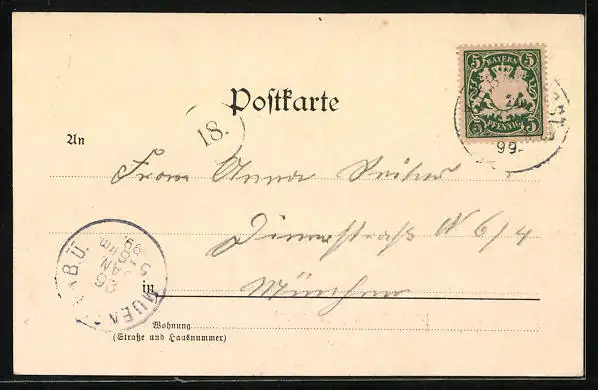 5 BAYERN 5
5 PFENNIG 5
99
Postkarte
18.
An
Frau Anna
Dienerstraße N 6/4
in München
B.Ü.
26
JAN
99
Wohnung
(Straße und Hausnummer)